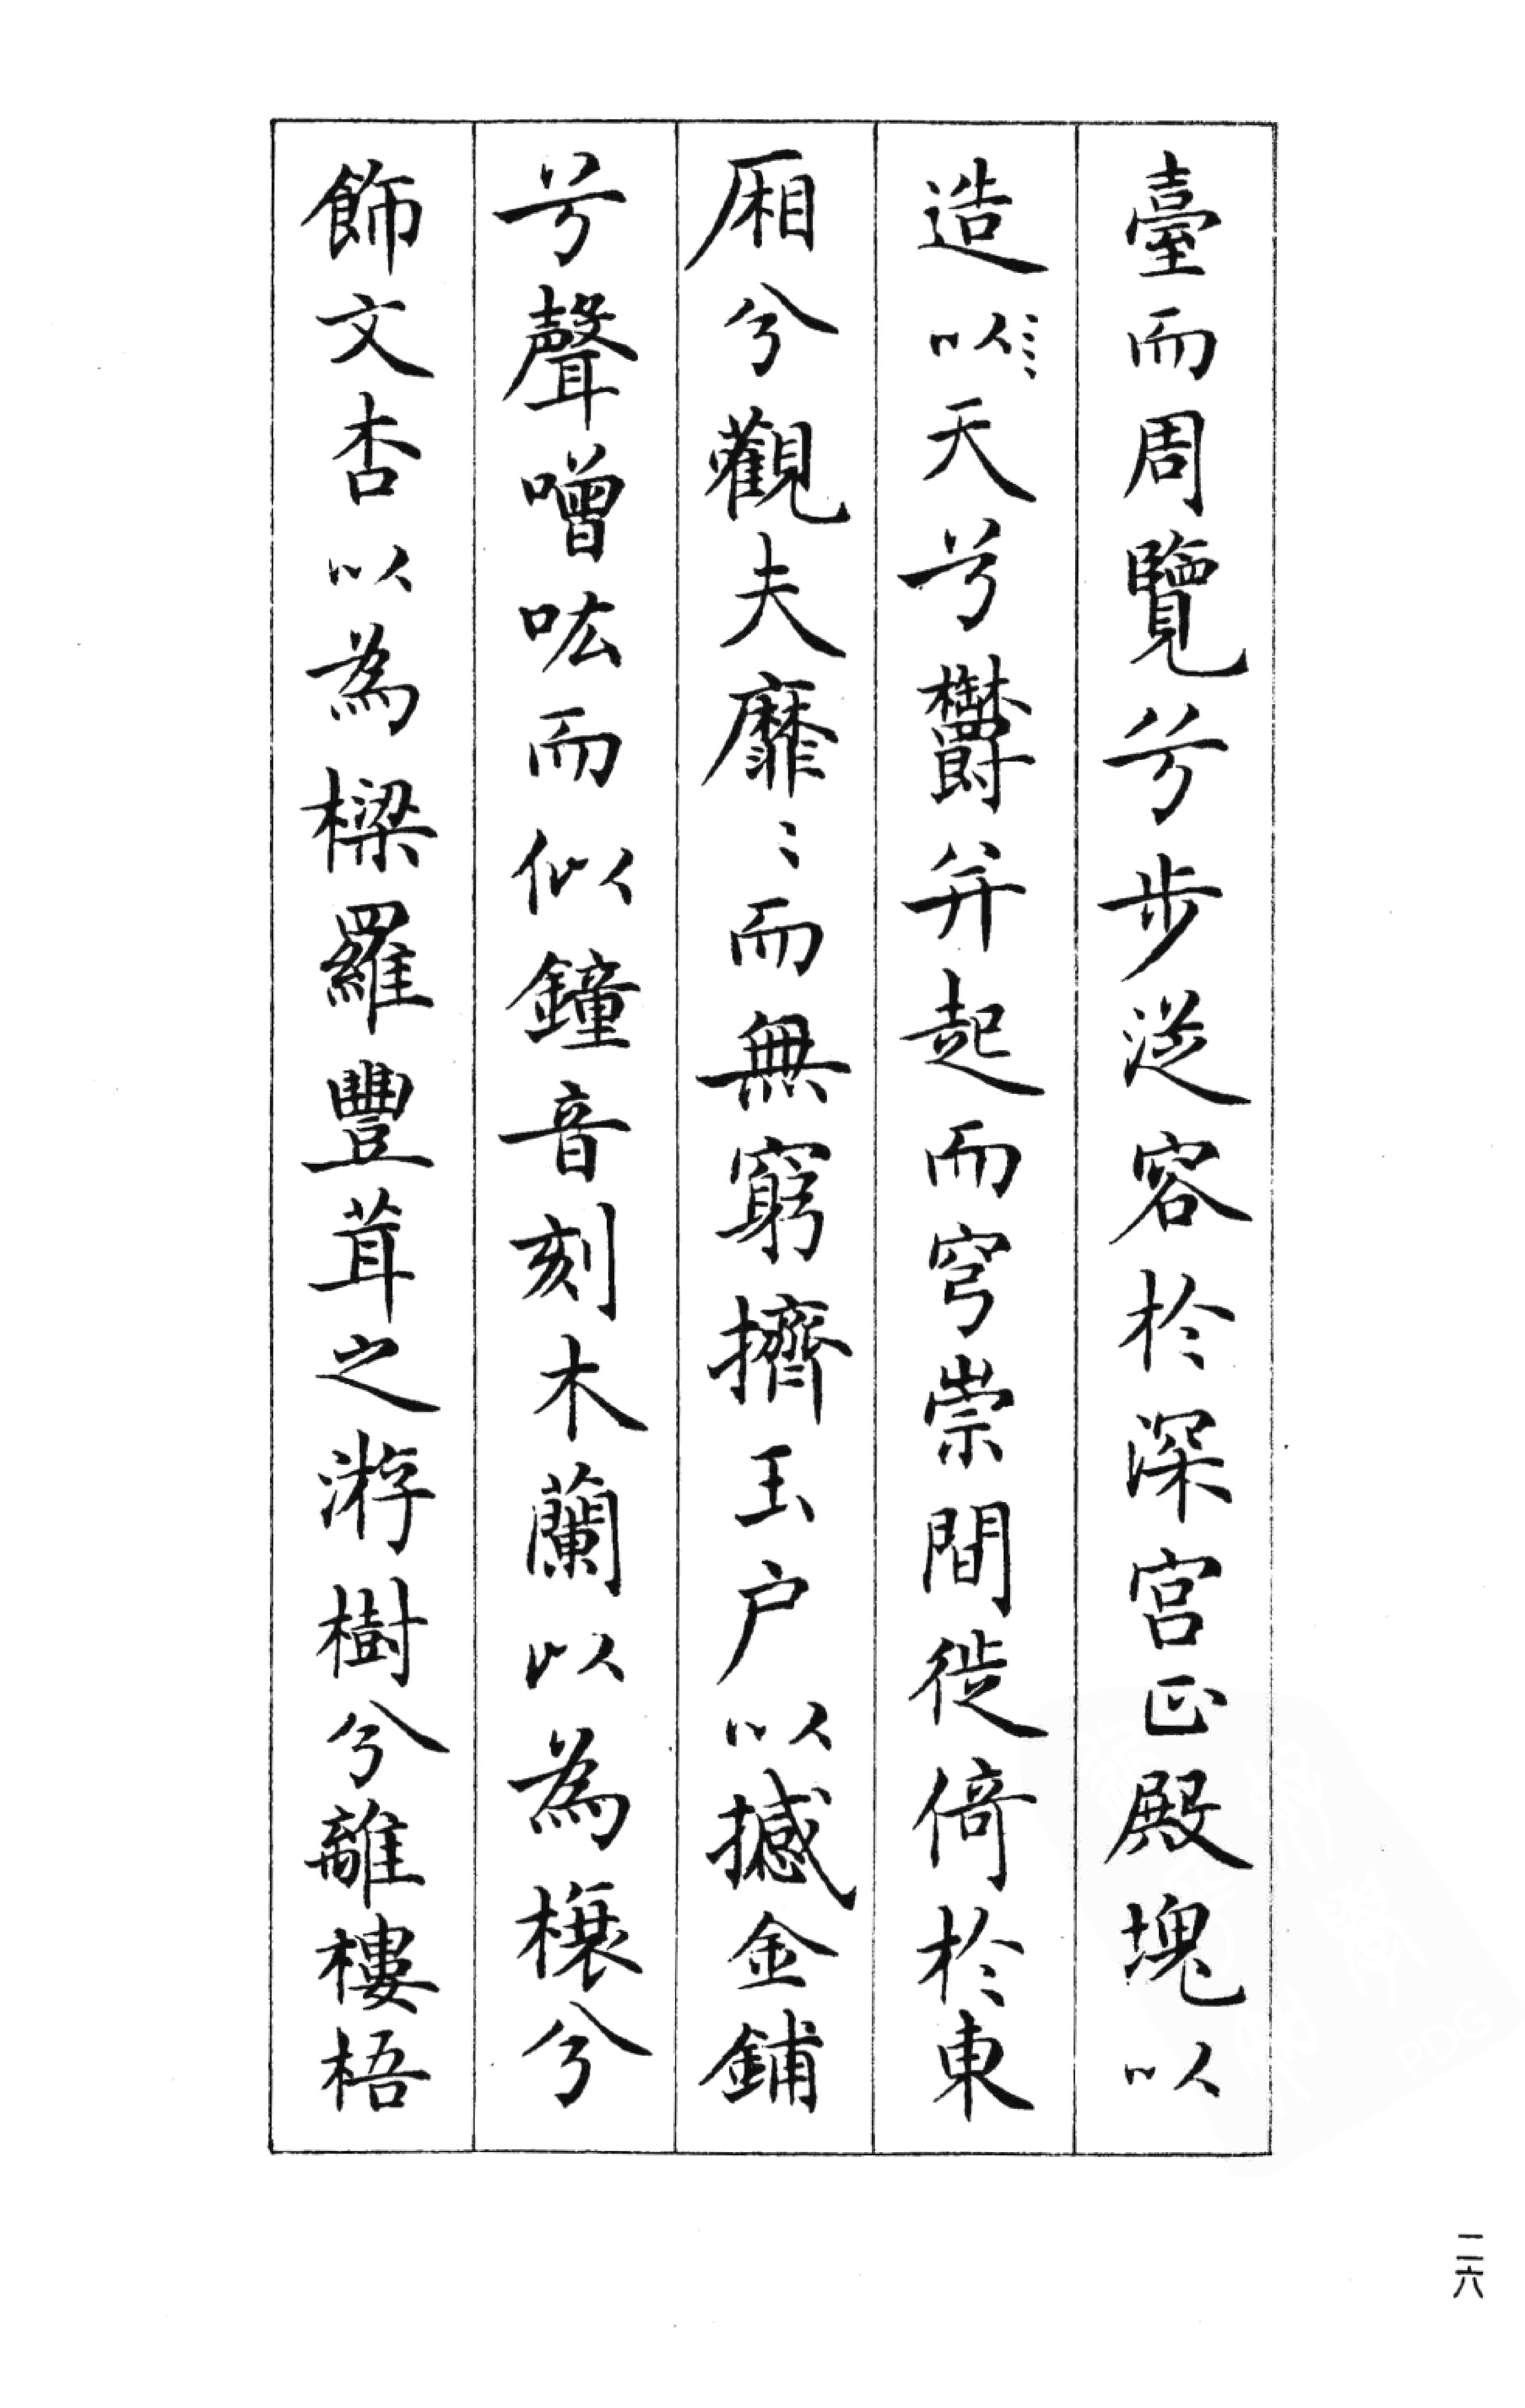 臺而周覽兮步從容於深宮正殿塊以
造以天兮鬱并起而穹崇間徙倚於東
厢兮觀夫靡〻而無窮擠玉户以撼金鋪
兮聲噌吰而似鐘音刻木蘭以為榱兮
飾文杏以為樑羅豐茸之游樹兮離樓梧
二六